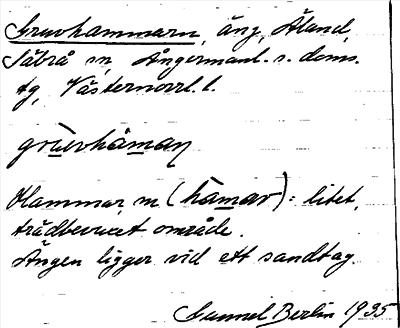 Gruvhammarn, äng, Åland,
Säbrå sn, Ångermanl. s. doms.
tg, Västernorrl. l.
gruvhåman
Hammar, m (håmar): litet,
trädbevuxet område.
Ängen ligger vid ett sandtag.
Gunnel Berlin 1935